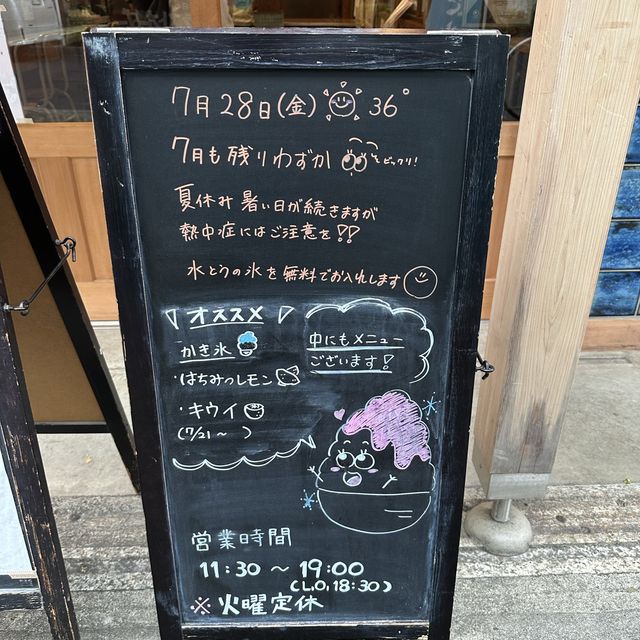 7月28日(金) 36°
7月も残りわずか ビックリ!
夏休み 暑い日が続きますが
熱中症にはご注意を!!
水とうの氷を無料でお入れします
オススメ
かき氷
・はちみつレモン
・キウイ
(7/21〜 )
中にもメニュー
ございます!
営業時間
11:30 〜 19:00
(L.O,18:30)
※火曜定休